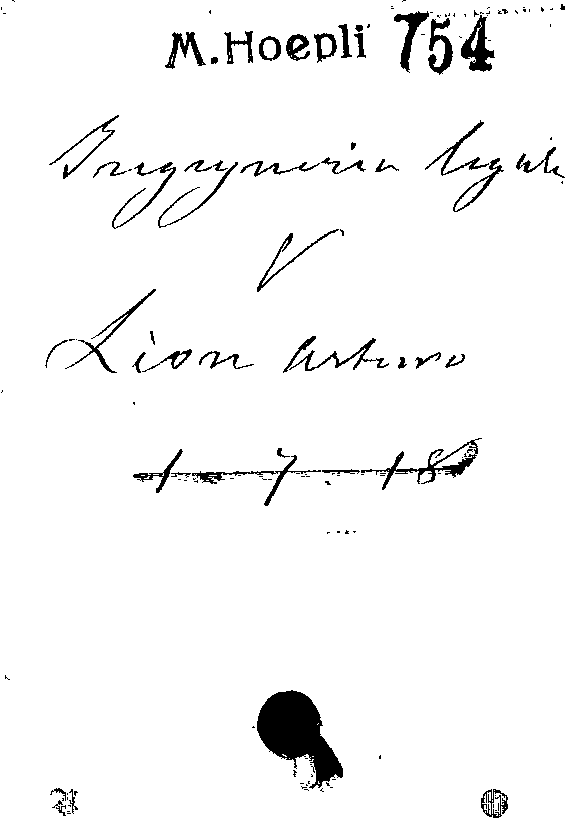 M. Hoepli 754
Ingegneria legale
V
Lion Arturo
1 . 7 . 18